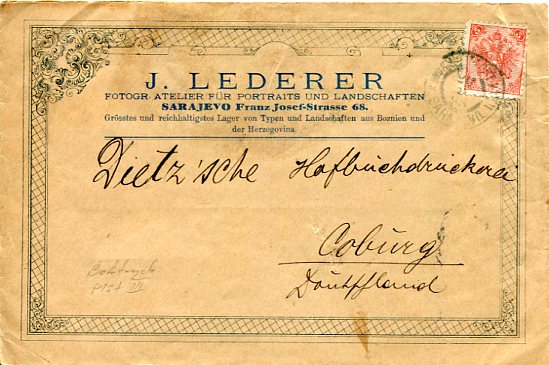 J. LEDERER
FOTOGR. ATELIER FÜR PORTRAITS UND LANDSCHAFTEN
SARAJEVO Franz Josef-Strasse 68.
Grösstes und reichhaltigstes Lager von Typen und Landschaften aus Bosnien und
der Herzegovina
Dietz'sche Hofbuchdruckerei
Coburg
Deutschland